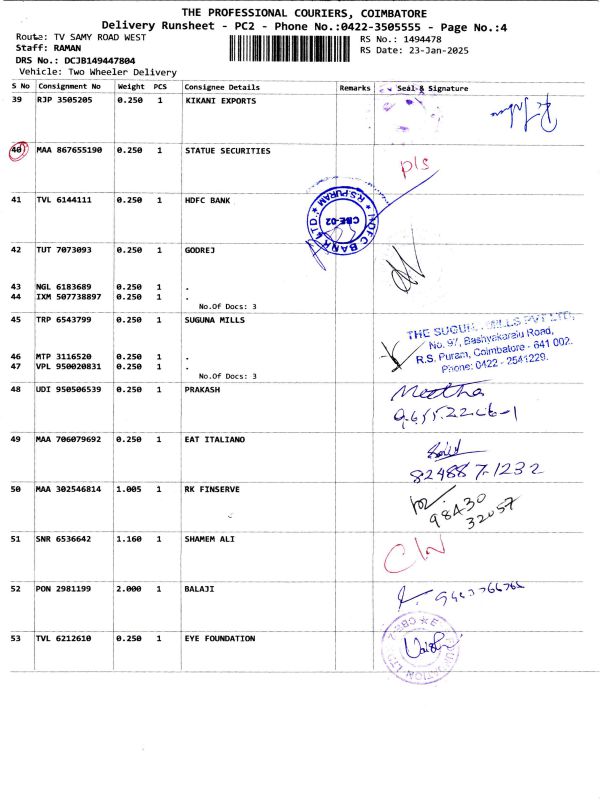 THE PROFESSIONAL COURIERS, COIMBATORE
Delivery Runsheet - PC2 - Phone No.:0422-3505555 - Page No.:4
Route: TV SAMY ROAD WEST
RS No.: 1494478
Staff: RAMAN
RS Date: 23-Jan-2025
DRS No.: DCJB149447804
Vehicle: Two Wheeler Delivery
S No Consignment No Weight PCS Consignee Details Remarks Seal & Signature
39 RJP 3505205 0.250 1 KIKANI EXPORTS
40 MAA 867655190 0.250 1 STATUE SECURITIES
pls
41 TVL 6144111 0.250 1 HDFC BANK
HDFC BANK LTD * R.S.PURAM *
CBE-02
42 TUT 7073093 0.250 1 GODREJ
43 NGL 6183689 0.250 1 .
44 IXM 507738897 0.250 1 .
No.Of Docs: 3
45 TRP 6543799 0.250 1 SUGUNA MILLS
THE SUGUN MILLS PVT LTD,
No. 97, Bashyakaralu Road,
R.S. Puram, Coimbatore - 641 002.
Phone: 0422 - 2541229.
46 MTP 3116520 0.250 1 .
47 VPL 950020831 0.250 1 .
No.Of Docs: 3
48 UDI 950506539 0.250 1 PRAKASH
Meetha
49 MAA 706079692 0.250 1 EAT ITALIANO
824887-1232
50 MAA 302546814 1.005 1 RK FINSERVE
98430
32057
51 SNR 6536642 1.160 1 SHAMEM ALI
C/N
52 PON 2981199 2.000 1 BALAJI
53 TVL 6212610 0.250 1 EYE FOUNDATION